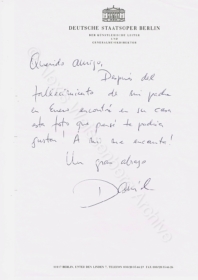 DEUTSCHE STAATSOPER BERLIN
DER KÜNSTLERISCHE LEITER
UND
GENERALMUSIKDIREKTOR
Querido amigo,
Después del
fallecimiento de mi padre
en Enero encontré en su casa
esta foto que pensé te podría
gustar! A mi me encanta!
Un gran abrazo
Daniel
BERLIN, UNTER DEN LINDEN 7